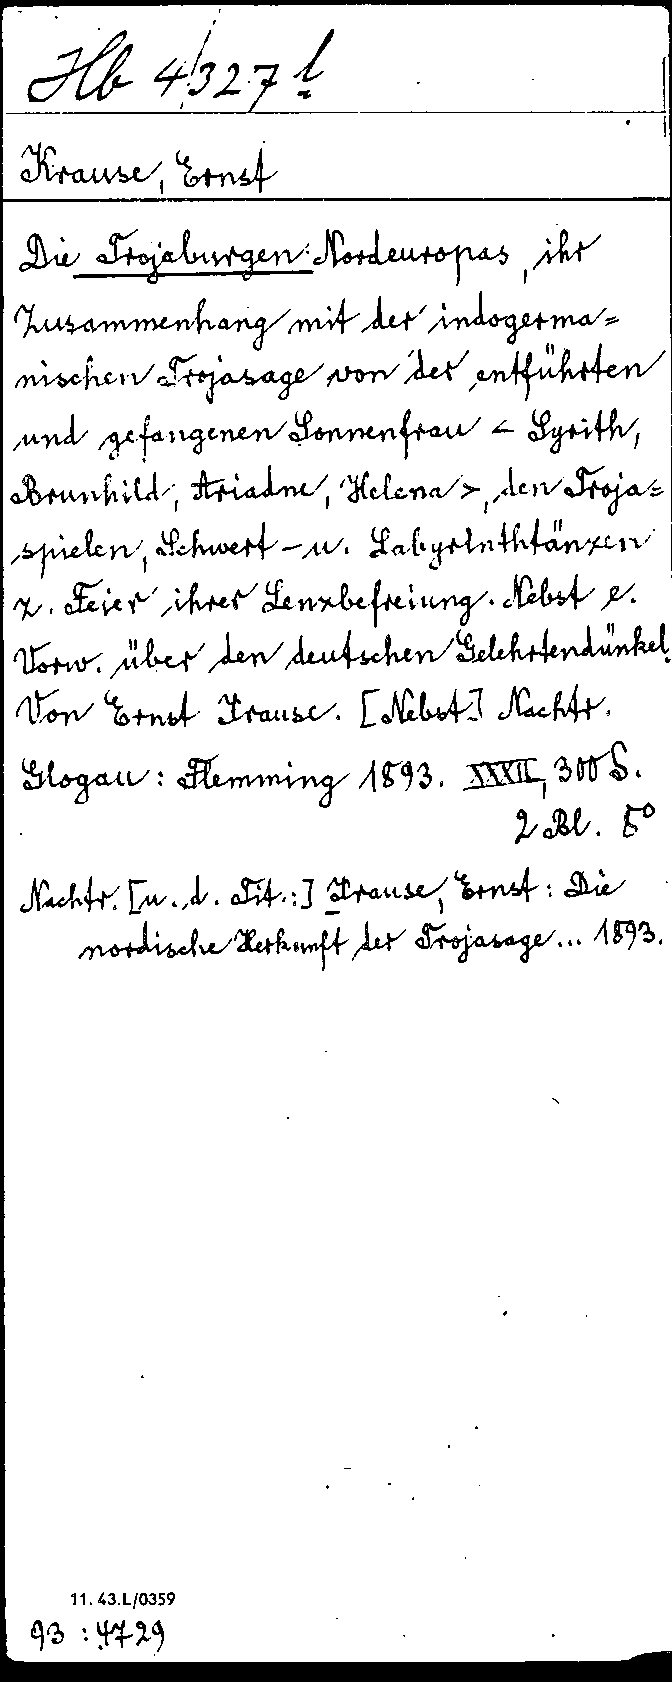 Hb 4327 l
Krause, Ernst
Die Trojaburgen Nordeuropas, ihr
Zusammenhang mit der indogerma=
nischen Trojasage von der entführten
und gefangenen Sonnenfrau < Syrith,
Brunhild, Ariadne, Helena >, den Troja=
spielen, Schwert- u. Labyrinthtänzen
z. Feier ihrer Lenzbefreiung. Nebst e.
Vorw. über den deutschen Gelehrtendünkel.
Von Ernst Krause. [Nebst] Nachtr.
Glogau: Flemming 1893. XXXII, 300 S.
2 Bl. 8°
Nachtr. [u. d. Tit.:] Krause, Ernst: Die
nordische Herkunft der Trojasage... 1893.
11. 43.L/0359
93 : 4729